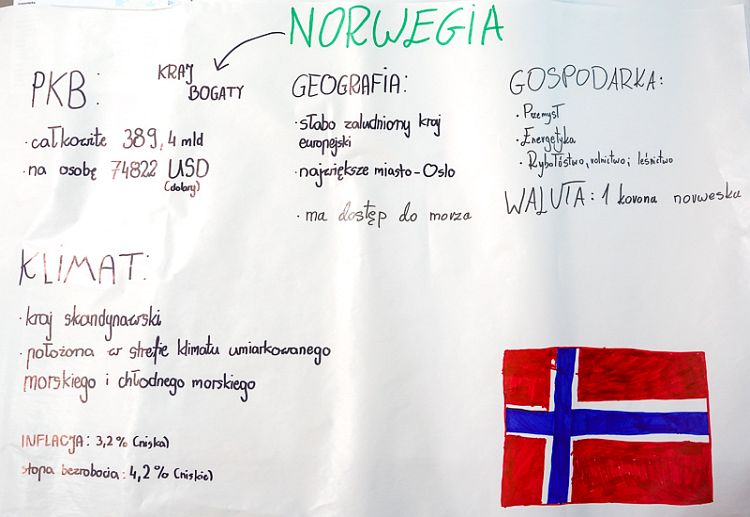 NORWEGIA
KRAJ
BOGATY
PKB:
· całkowite 389,4 mld
· na osobę 74822 USD
(dolary)
GEOGRAFIA:
· słabo zaludniony kraj
europejski
· największe miasto - Oslo
· ma dostęp do morza
GOSPODARKA:
· Przemysł
· Energetyka
· Rybołóstwo, rolnictwo i leśnictwo
WALUTA: 1 korona norweska
KLIMAT:
· kraj skandynawski
· położona w strefie klimatu umiarkowanego
morskiego i chłodnego morskiego
INFLACJA: 3,2% (niska)
stopa bezrobocia: 4,2% (niskie)